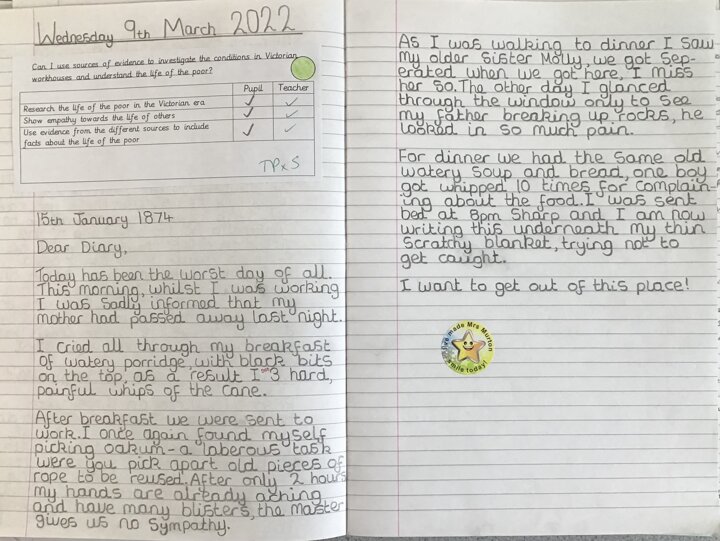 Wednesday 9th March 2022
Can I use sources of evidence to investigate the conditions in Victorian
workhouses and understand the life of the poor?
Pupil Teacher
Research the life of the poor in the Victorian era
Show empathy towards the life of others
Use evidence from the different sources to include
facts about the life of the poor
TPxS
15th January 1874
Dear Diary,
Today has been the worst day of all.
This morning, whilst I was working
I was sadly informed that my
mother had passed away last night.
I cried all through my breakfast
of watery porridge, with black bits
on the top, as a result I 3 hard,
painful whips of the cane.
After breakfast we were sent to
work. I once again found myself
picking oakum - a laberous task
were you pick apart old pieces of
rope to be reused. After only 2 hours
my hands are already aching
and have many blisters, the master
gives us no sympathy.
As I was walking to dinner I saw
my older sister Molly, we got sep-
erated when we got here, I miss
her so. The other day I glanced
through the window only to see
my father breaking up rocks, he
looked in so much pain.
For dinner we had the same old
watery soup and bread, one boy
got whipped 10 times for complain-
ing about the food. I was sent
bed at 8pm sharp and I am now
writing this underneath my thin
scratchy blanket, trying not to
get caught.
I want to get out of this place!
made Mrs Murton
smile today!